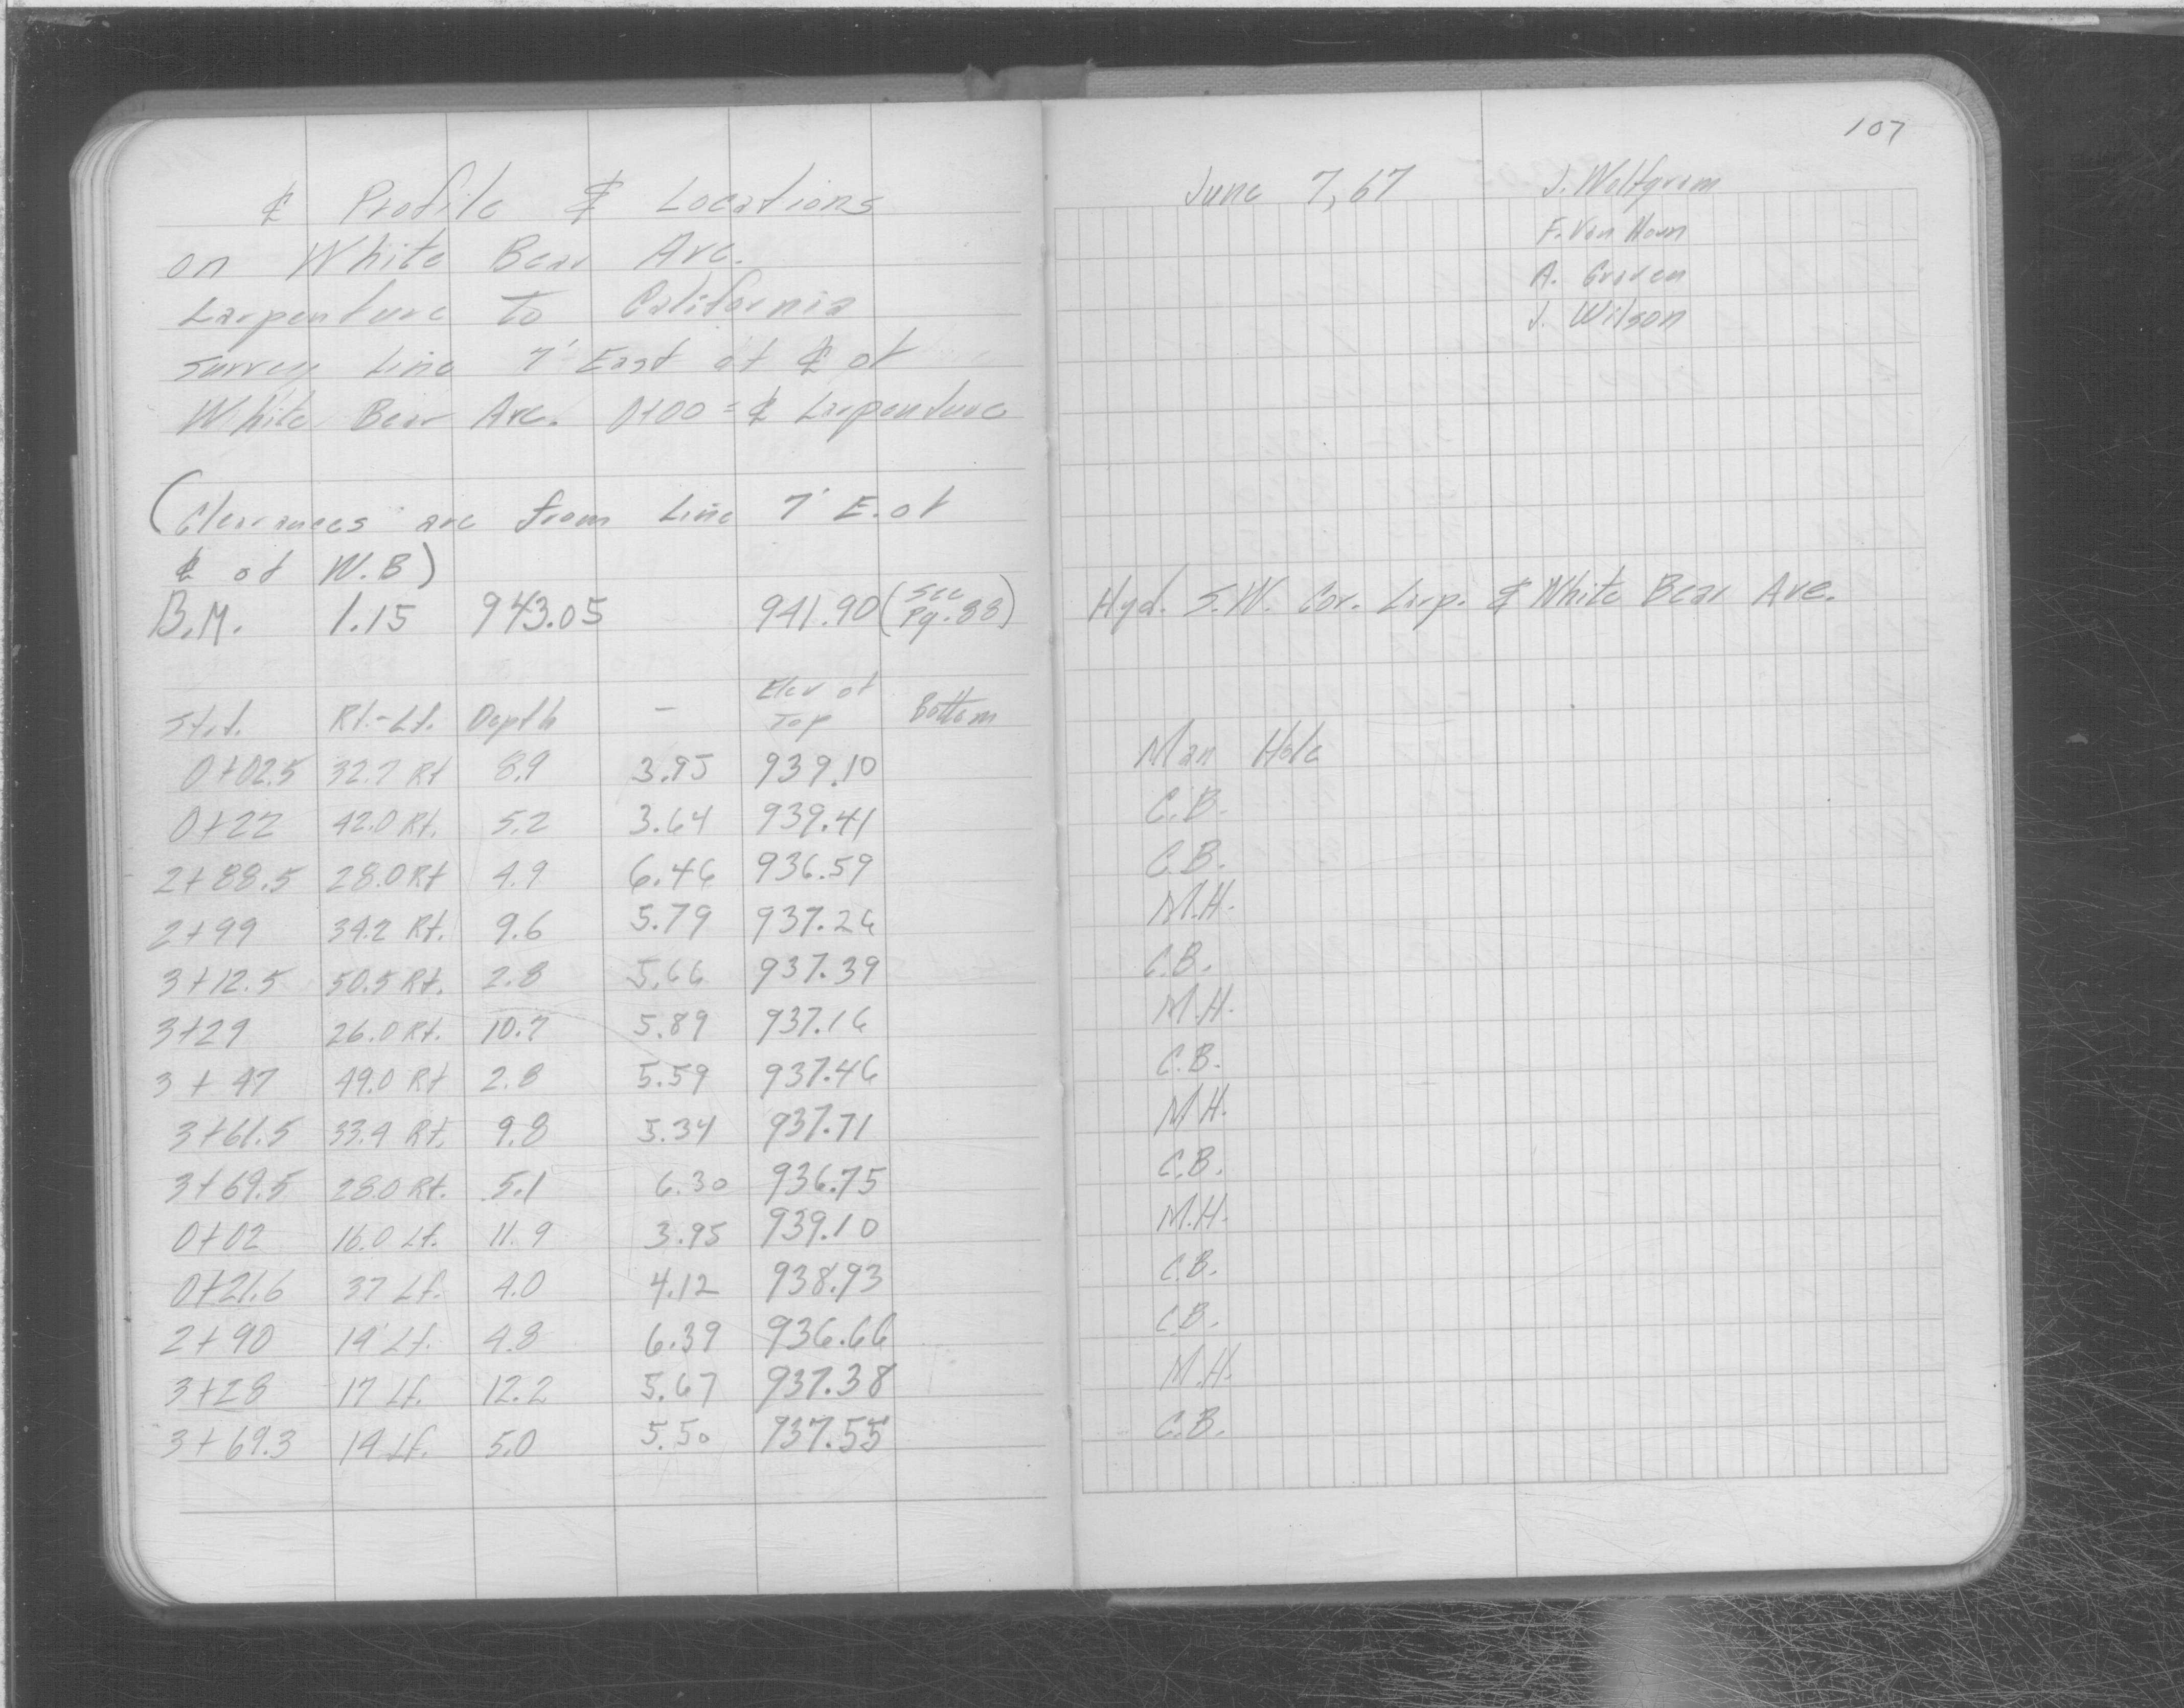 ℄ Profile & Locations
on White Bear Ave.
Larpenture to California
Survey Line 7' East of ℄ of
White Bear Ave. 0+00 = ℄ Larpenture
(Clearances are from Line 7' E. of
℄ of W.B)
B.M. 1.15 943.05 941.90 (See Pg. 88)
Stat. Rt.-Lt. Depth - Elev of Top Bottom
0+02.5 32.7 Rt 8.9 3.95 939.10
0+22 42.0 Rt. 5.2 3.64 939.41
2+88.5 28.0 Rt 4.9 6.46 936.59
2+99 34.2 Rt. 9.6 5.79 937.26
3+12.5 50.5 Rt. 2.8 5.66 937.39
3+29 26.0 Rt. 10.7 5.89 937.16
3+47 49.0 Rt 2.8 5.59 937.46
3+61.5 33.4 Rt. 9.8 5.34 937.71
3+69.5 28.0 Rt. 5.1 6.30 936.75
0+02 16.0 Lt. 11.9 3.95 939.10
0+21.6 37 Lt. 4.0 4.12 938.93
2+90 14' Lt. 4.8 6.39 936.66
3+28 17 Lt. 12.2 5.67 937.38
3+69.3 14 Lt. 5.0 5.50 937.55
107
June 7, 67 J. Wolfgram
F. Van Horn
A. Craven
J. Wilson
Hyd. S.W. Cor. Larp. & White Bear Ave.
Man Hole
C.B.
C.B.
M.H.
C.B.
M.H.
C.B.
M.H.
C.B.
M.H.
C.B.
C.B.
M.H.
C.B.